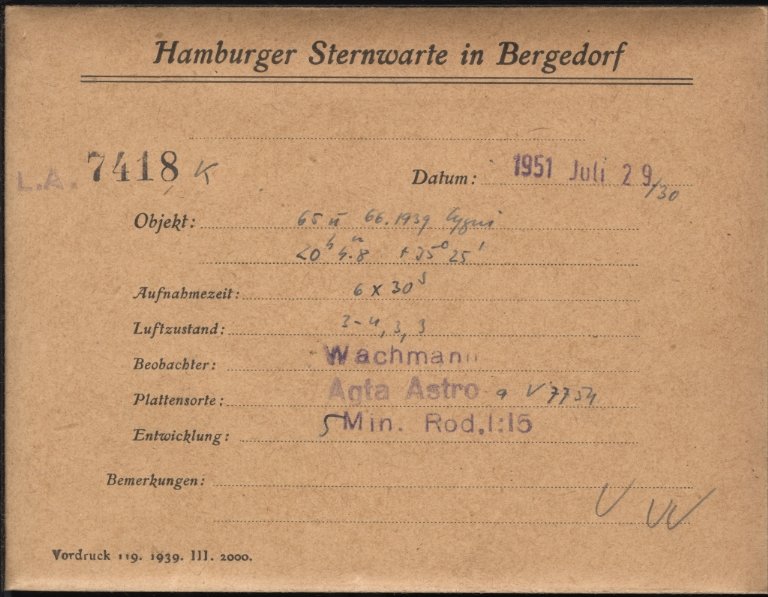 Hamburger Sternwarte in Bergedorf
L.A. 7418 K
Datum: 1951 Juli 29/30
Objekt: 65 u 66.1939 Cygni
20h 4m.8 +35° 25'
Aufnahmezeit: 6 x 30s
Luftzustand: 3-4, 3, 3
Beobachter: Wachmann
Plattensorte: Agfa Astro V7754
Entwicklung: 5 Min. Rod. 1:15
Bemerkungen:
V VV
Vordruck 119. 1939. III. 2000.